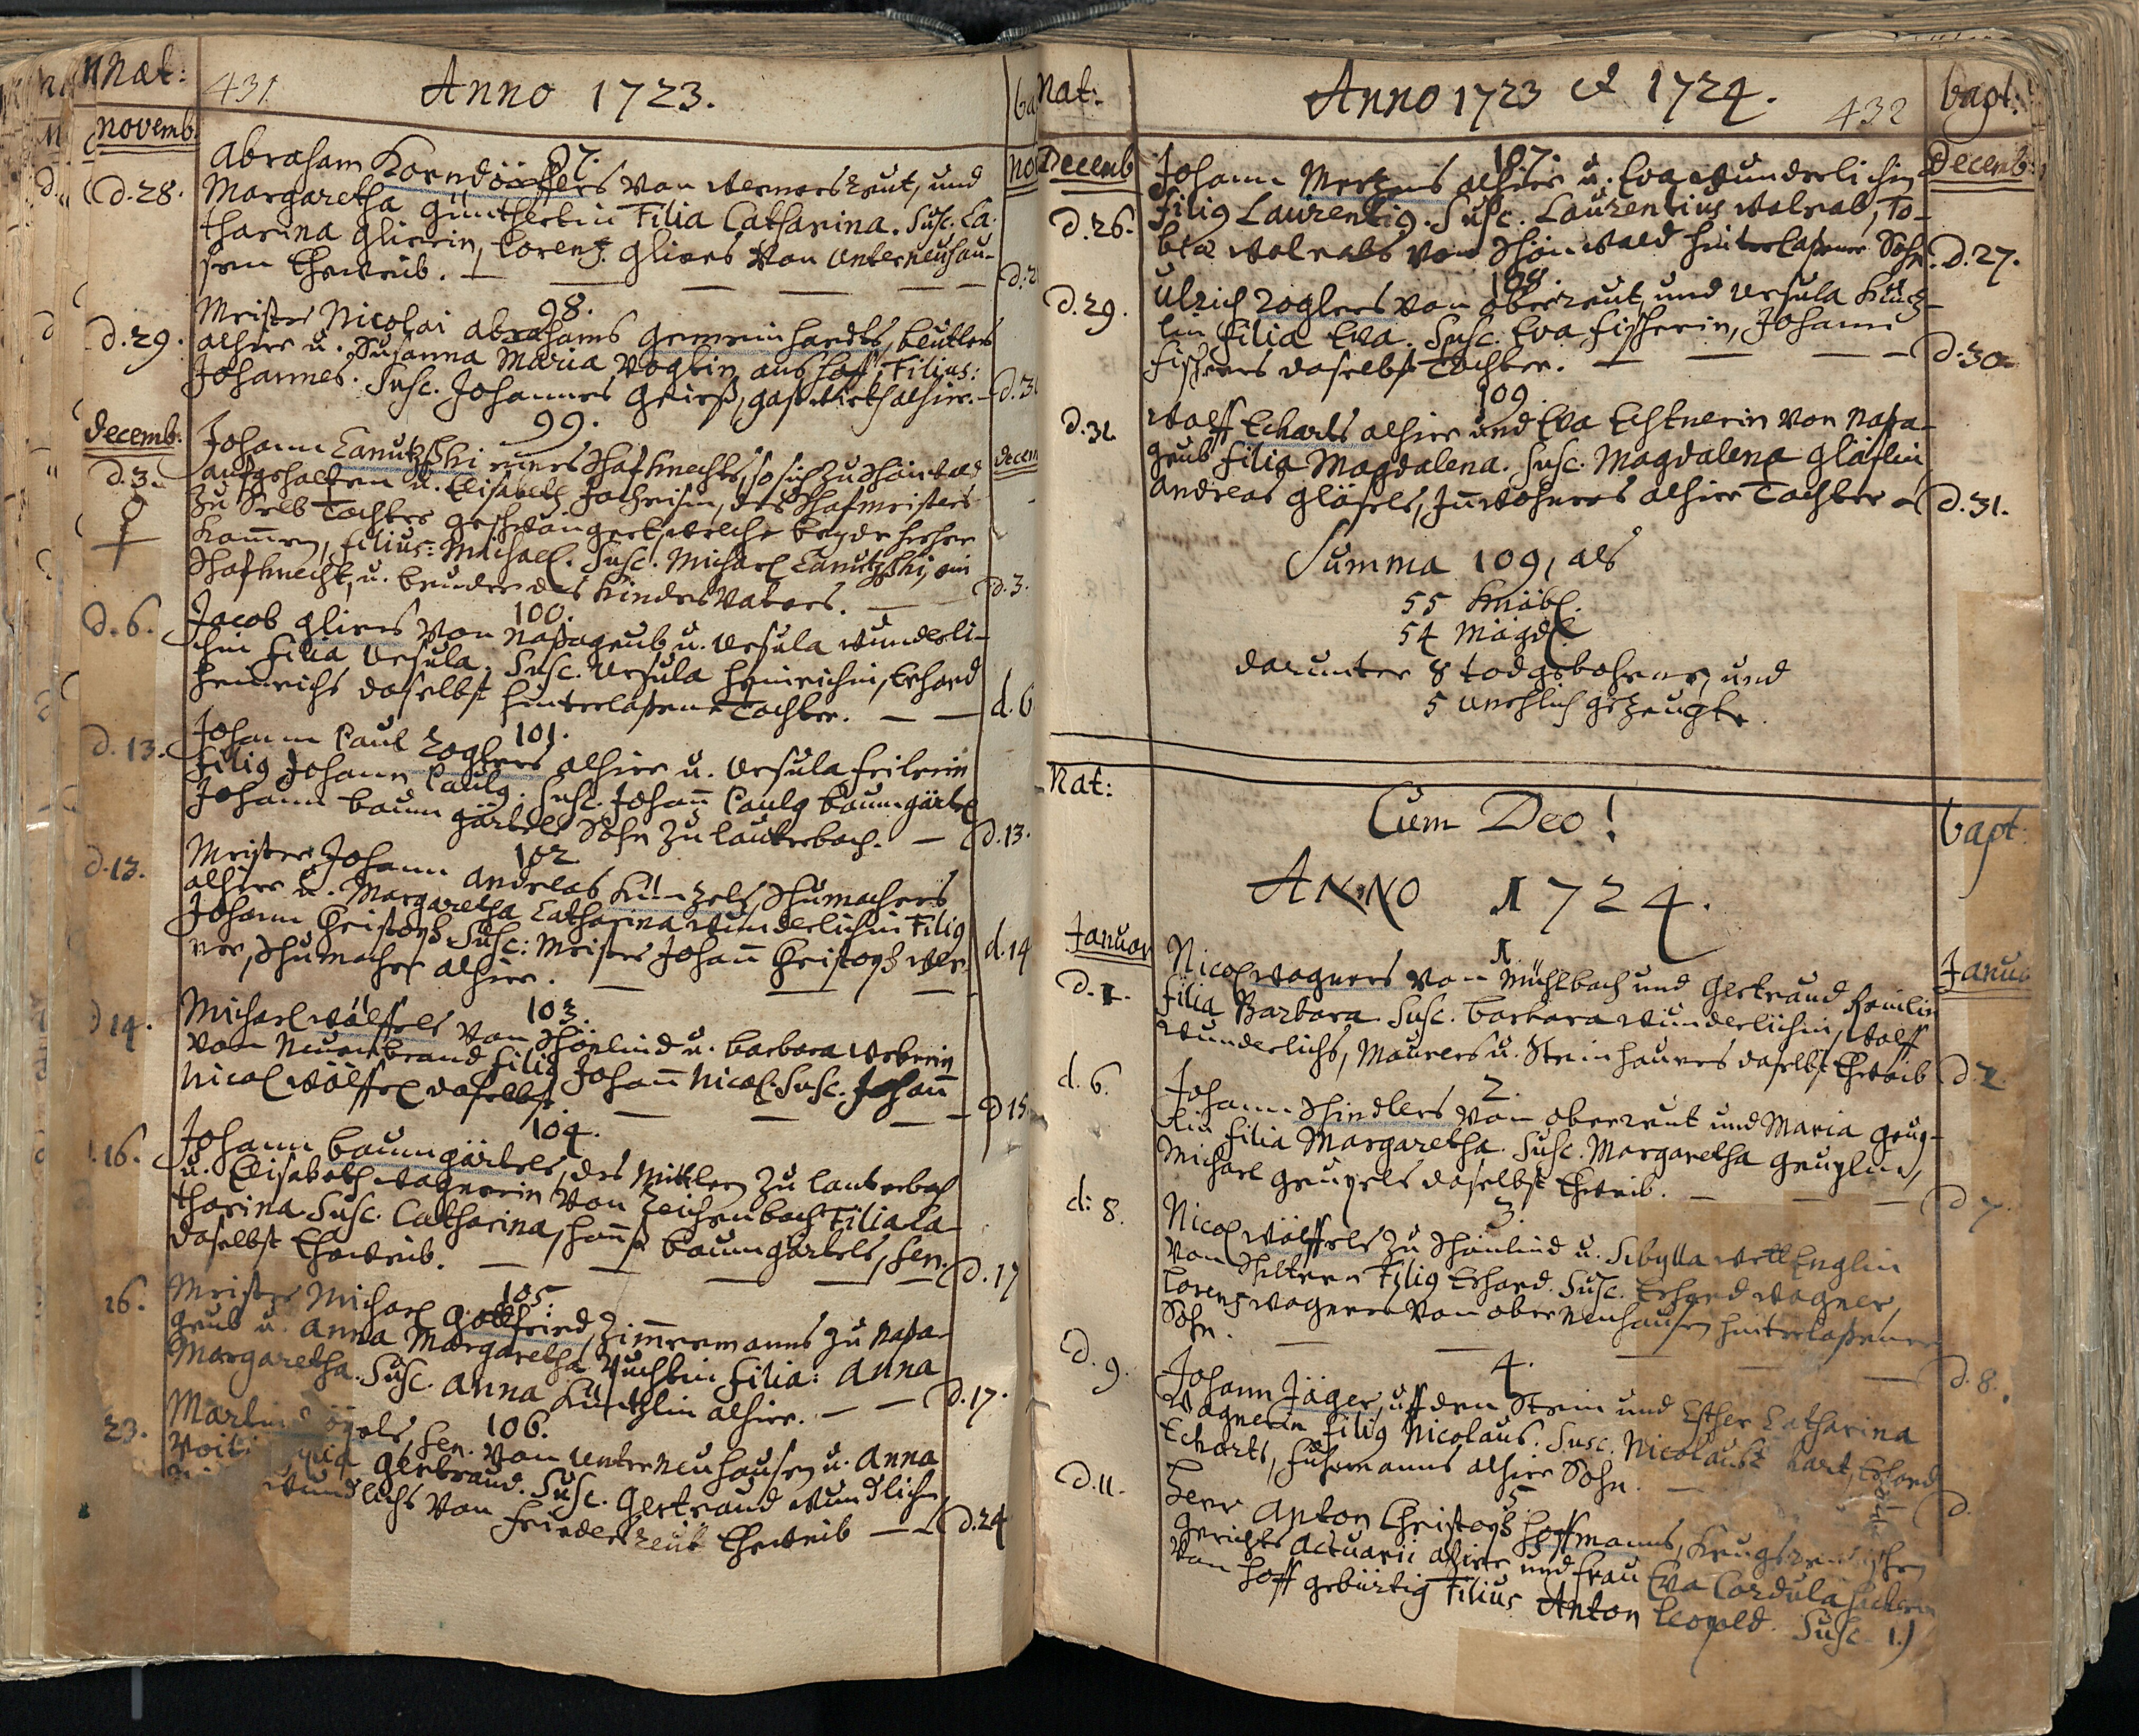 Nat:
431
Anno 1723.
Novemb.
97.
d. 28.
Abraham Korndörfers von Wernersreut, und
Margaretha Güntherlin Filia Catharina. Susc. Ca-
tharina Glierin, Lorenz Gliers von Unterneuhau-
sen Eheweib.
98.
d. 29.
Meister Nicolai Abrahams Gemeinhardts, beutlers
alhier u. Susanna Maria Voglin aus Hoff, Filius:
Johannes. Susc. Johannes Geirß, gastwirth alhier.
99.
Decemb.
d. 3.
Johann Canutzski eines Schafknechts, so sich zu Schönwald
aufgehalten u. Elisabeth des Schafmeisters
zu Selb Tochter geschwängert, welche beyde hieher
kommen, Filius: Michael. Susc. Michael Canutzski, ein
Schafknecht, u. bruder des Kindes Vaters.
d. 3.
100.
d. 6.
Jacob Gliers von Naßagrub u. Ursula Wunderli-
chin Filia Ursula. Susc. Ursula Heinrichin, Erhard
Heinrichs daselbst hinterlaßene Tochter.
d. 6
101.
d. 13.
Johann Paul Zoglers alhier u. Ursula Feilerin
Filig Johann Paulg. Susc. Johañ Paulg Baumgärtel
Johann Baumgärtels Sohn zu Lauterbach.
d. 13.
102.
d. 13.
Meister Johann Andreas Künzels, Schumachers
alhier u. Margaretha Catharina Wunderlichin Filig
Johann Christoph Susc: Meister Johañ Christoph Wer-
ner, Schumacher alhier.
d. 14
103.
d 14.
Michael Wölffels von Schönlind u. Barbara Weberin
von Neuenbrand Filig Johañ Nicol. Susc. Johañ
Nicol Wölffel daselbst.
d 15
104.
16.
Johann Baumgärtels, des Mittlern zu Lauterbach
u. Elisabeth Wagnerin von Reichenbach Filia Ca-
tharina. Susc. Catharina, Hanß Baumgärtels, sen.
daselbst Eheweib.
d. 17
105.
16.
Meister Michael Gottfried, Zimmermanns zu Naßa-
grub u. Anna Margaretha Filia: Anna
Margaretha. Susc. Anna Künzlin alhier.
d. 17.
106.
23.
Martin sen. von Unterneuhausen u. Anna
Gertraud. Susc. Gertraud Wundlichin,
Wundlichs von Friedersreut Eheweib
d. 24
Nat:
Anno 1723 et 1724.
432
bapt:
Decemb
107.
Decemb:
d. 26.
Johann Mertzens alhier u. Eva Wunderlichin
Filig Laurentig. Susc. Laurentius Wolrab, To-
biæ Wolrabs von Schönwald hinterlaßener Sohn.
d. 27.
108.
d. 29.
Ulrich Zoglers von Oberreut, und Ursula Küntz-
lin Filia Eva. Susc. Eva Fischerin, Johann
Fischers daselbst Tochter.
d. 30.
109.
d. 31.
Wolff Echarts alhier und Eva Echtnerin von Naßa-
grub Filia Magdalena. Susc. Magdalena Gläslin
Andreas Gläsels, Innwohners alhier Tochter
d. 31.
Summa 109, als
55 Knäbl.
54 Mägdl.
darunter 8 todgebohrne, und
5 unehlich gezeugte
Nat:
Cum Deo!
bapt:
ANNO 1724.
Januar
1.
Janua
d. 1.
Nicol Wagners von Mühlbach und Gertraud
Filia Barbara. Susc. Barbara Wunderlichin, Wolff
Wunderlichs, Maurers u. Steinhauers daselbst Eheweib
d. 2.
2.
d. 6.
Johann Schindlers von Oberreut und Maria Geup-
lin Filia Margaretha. Susc. Margaretha Geuplin,
Michael Geupels daselbst Eheweib.
d 7.
3.
d: 8.
Nicol Wölffels zu Schönlind u. Sibylla
von Schiltern Filig Erhard. Susc. Erhard Wagner,
Lorenz Wagners von Oberneuhausen hinterlaßener
Sohn.
d. 8.
4.
d. 9.
Johann Jäger, uff den Stein und Esther Catharina
Wagnerin Filig Nicolaus. Susc. Nicolaus Erhard
Echarts, Fuhrmanns alhier Sohn.
d.
5.
d. 11.
Herr Anton Christoph Hoffmanns,
Gerichts Actuarii alhier und Frau Eva Cordula
von Hoff gebürtig Filius Anton Leopold. Susc. 1.)